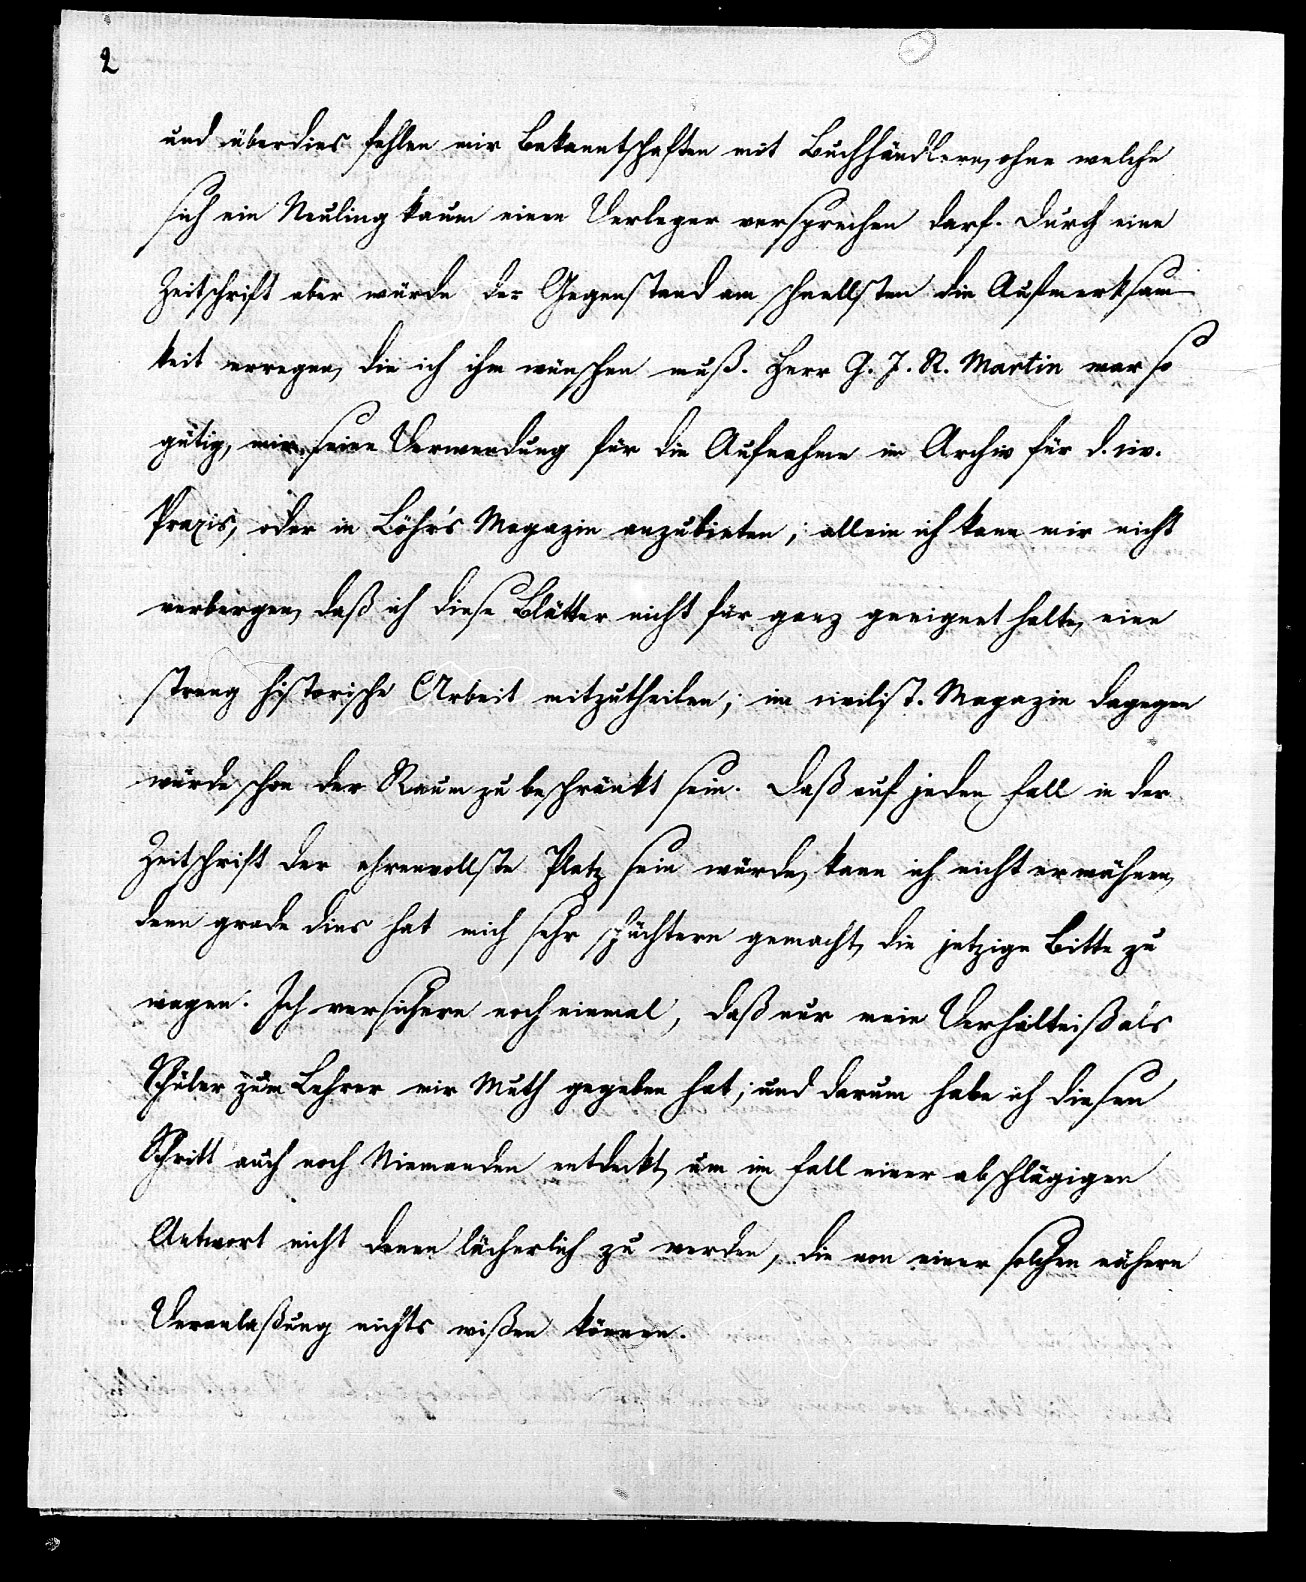 2
und überdies fehlen mir Bekanntschaften mit Buchhändlern, ohne welche
sich ein Neuling kaum einen Verleger versprechen darf. Durch eine
Zeitschrift aber würde der Gegenstand am schnellsten die Aufmerksam
keit erregen, die ich ihm wünschen muß. Herr G. J. R. Martin war so
gütig, mir seine Verwendung für die Aufnahme im Archiv für d. civ.
Praxis, oder in Löhr's Magazin anzubieten; allein ich kann mir nicht
verbergen, daß ich diese Blätter nicht für ganz geeignet halte, eine
streng historische Arbeit mitzutheilen; im civilist. Magazin dagegen
würde schon der Raum zu beschränkt sein. Daß auf jeden Fall in der
Zeitschrift der ehrenvollste Platz sein würde, kann ich nicht erwähnen,
denn grade dies hat mich sehr schüchtern gemacht, die jetzige Bitte zu
wagen. Ich versichere noch einmal, daß nur mein Verhältniß als
Schüler zum Lehrer mir Muth gegeben hat; und darum habe ich diesen
Schritt auch noch Niemanden entdeckt, um im Fall einer abschlägigen
Antwort nicht denen lächerlich zu werden, die von einer solchen nähern
Veranlaßung nichts wißen können.